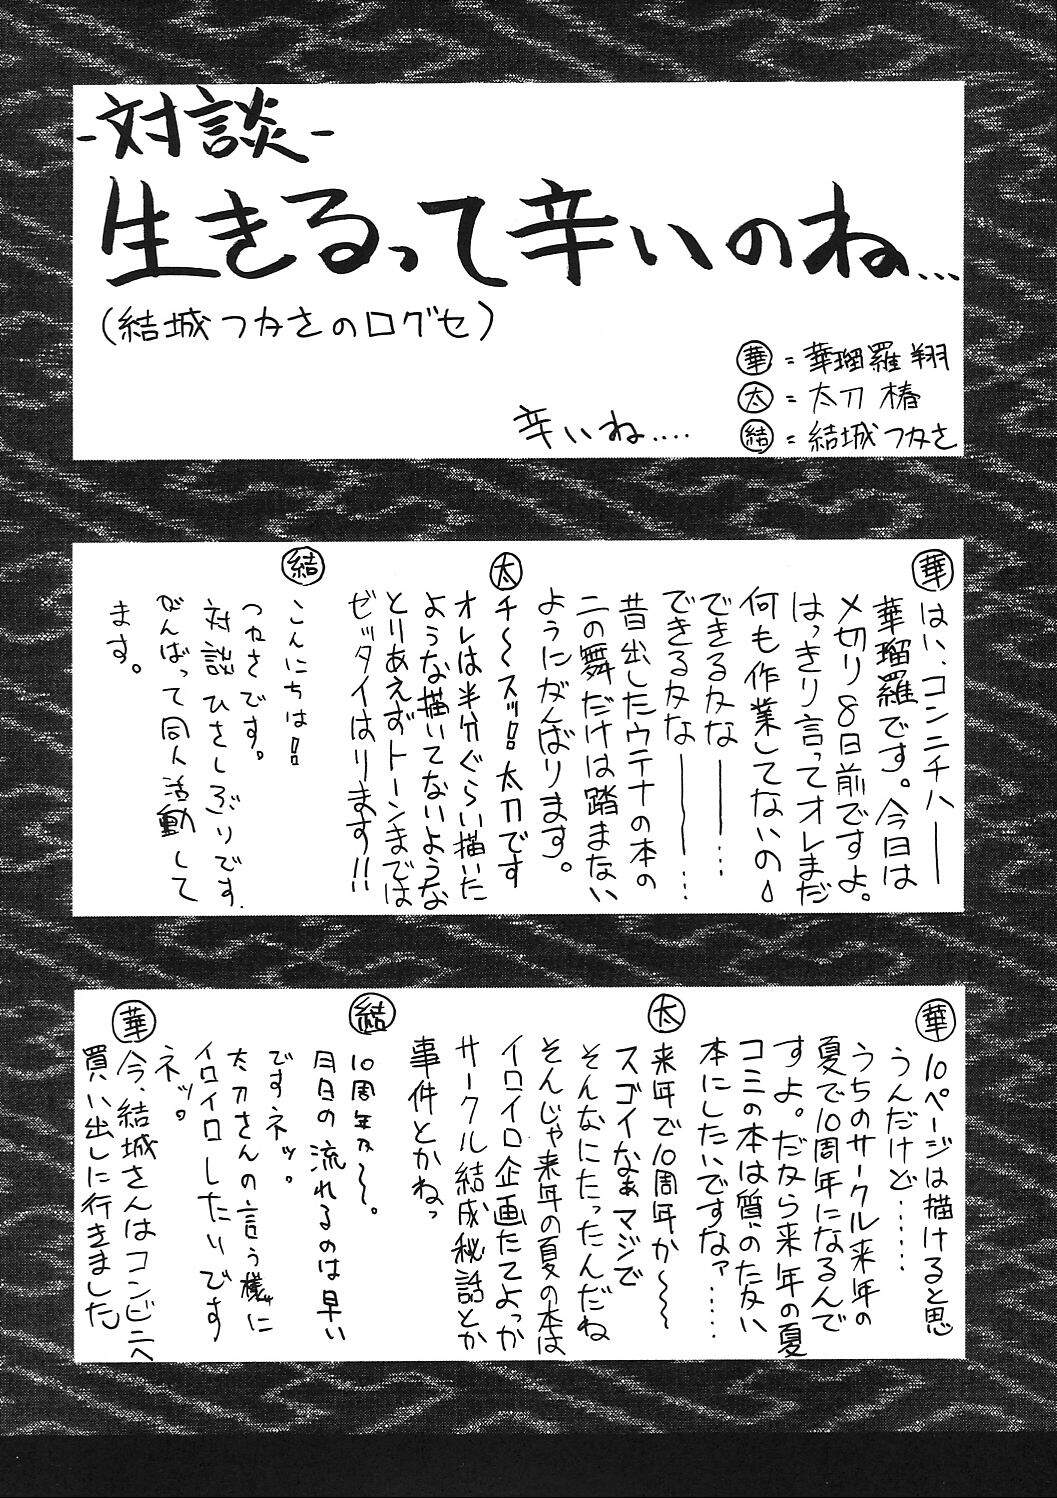 -対談-
生きるって辛いのね…
(結城つかさの口グセ)
辛いね‥‥
華=華瑠羅 翔
太=太刀 椿
結=結城つかさ
華 はい、コンニチハ――
華瑠羅です。今日は
〆切り8日前ですよ。
はっきり言ってオレまだ
何も作業してないの
できるかな――…
できるかな――…
昔出したウテナの本の
二の舞だけは踏まない
ようにがんばります。
太 チ〜〜スッ!!太刀です
オレは半分ぐらい描いた
ような描いてないような
とりあえずトーンまでは
ゼッタイはります!!
結 こんにちは!!
つかさです。
対談ひさしぶりです。
がんばって同人活動して
ます。
華 10ページは描けると思
うんだけど……
うちのサークル来年の
夏で10周年になるんで
すよ。だから来年の夏
コミの本は質のた高い
本にしたいですなァ……
太 来年で10周年か〜〜〜
スゴイなぁマジで
そんなにたったんだね
そんじゃ来年の夏の本は
イロイロ企画たてよっか
サークル結成秘話とか
事件とかねっ
結 10周年か〜〜。
月日の流れるのは早い
ですネッ。
太刀さんの言う様に
イロイロしたいです
ネッ。
華 今、結城さんはコンビニへ
買い出しに行きました